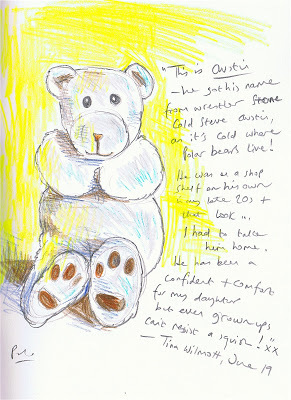 "This is Austin
- he got his name
from wrestler Stone
Cold Steve Austin,
as it's cold where
Polar bears live!
He was on a shop
shelf on his own
in my late 20s +
that look ...
I had to take
him home.
He has been a
confident + comfort
for my daughter
but even grown ups
can't resist a squish!" xx
- Tina Wilmott, June 19